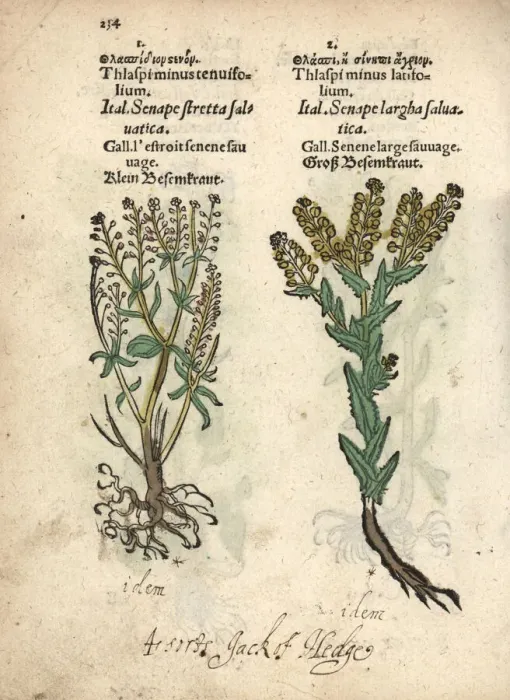 234
1.
Thlaspi minus tenuifo=
lium.
Ital. Senape stretta sal=
uatica.
Gall. l'estroit senene sau
uage.
Klein Besemkraut.
2.
Θλάσπι, ἢ σίνηπι ἄγριον.
Thlaspi minus latifo=
lium.
Ital. Senape largha salua=
tica.
Gall. Senene large sauuage.
Groß Besemkraut.
idem
idem
Jack of Hedge